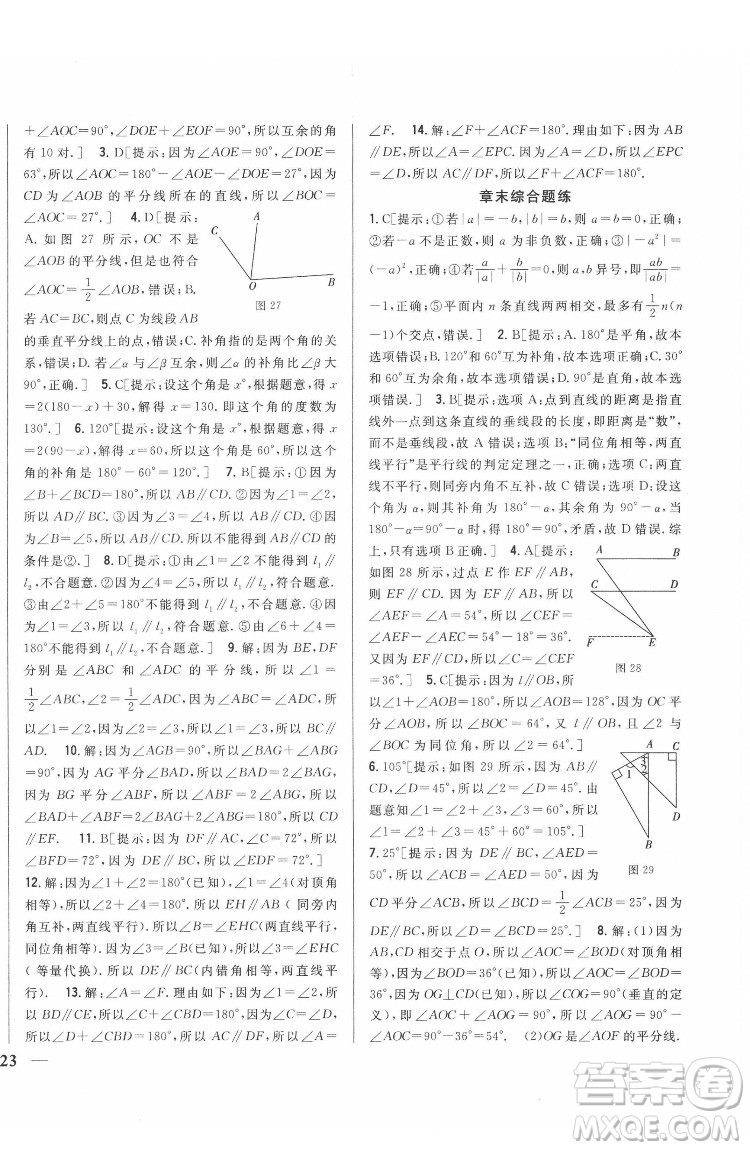 +∠AOC=90°,∠DOE+∠EOF=90°,所以互余的角
有10对.] 3. D[提示:因为∠AOE=90°,∠DOE=
63°,所以∠AOC=180°-∠AOE-∠DOE=27°,因为
CD为∠AOB的平分线所在的直线,所以∠BOC=
∠AOC=27°.] 4. D[提示:
A. 如图27所示,OC不是
∠AOB的平分线,但是符合
∠AOC=1/2∠AOB,错误;B.
若AC=BC,则点C为线段AB
的垂直平分线上的点,错误;C. 补角指的是两个角的关
系,错误;D. 若∠α与∠β互余,则∠α与∠β都小于
90°,正确.] 5. C[提示:设这个角是x°,根据题意,得
x=2(180-x)+30,解得x=130. 即这个角的度数为
130°.] 6. 120°[提示:设这个角为x°,根据题意,得
x=2(90-x),解得x=60,所以这个角是60°,所以这个
角的补角是180°-60°=120°.] 7. C[提示:①因为
∠B+∠BCD=180°,所以AB∥CD. ②因为∠1=∠2,
所以AD∥BC. ③因为∠3=∠4,所以AB∥CD. ④因
为∠B=∠5,所以AB∥CD. 所以不能得到AB∥CD的
条件是②.] 8. D[提示:①由∠1=∠2不能得到l₁∥
l₂,不合题意. ②由∠4=∠5不能得到l₁∥l₂,不合题
意. ③由∠2+∠5=180°不能得到l₁∥l₂,不合题意. ④
由∠1=∠3不能得到l₁∥l₂,不合题意. ⑤由∠6+∠4=
180°不能得到l₁∥l₂,不合题意.] 9. 解:因为BE,DF
分别是∠ABC和∠ADC的平分线,所以∠1=
1/2∠ABC,∠3=1/2∠ADC. 因为∠ABC=∠ADC,
所以∠1=∠3. 因为∠1=∠2,所以∠2=∠3,所以BC∥
AD. 10. 解:因为∠AGB=90°,所以∠BAG+∠ABG
=90°. 因为AG平分∠BAC,所以∠BAC=2∠BAG.
因为BG平分∠ABF,所以∠ABF=2∠ABG,所以
∠BAC+∠ABF=2∠BAG+2∠ABG=180°,所以CD
∥EF. 11. B[提示:因为DF∥AC,∠C=72°,所以
∠BFD=72°,所以∠BED=72°,所以∠BED=∠C.]
12. 解:因为∠1+∠2=180°(已知),∠1=∠4(对顶角
相等),所以∠2+∠4=180°. 所以EH∥AB(同旁内
角互补,两直线平行),所以∠B=∠EHC(两直线平行,
同位角相等). 因为∠3=∠B(已知),所以∠3=∠EHC
(等量代换). 所以DE∥BC(内错角相等,两直线平
行). 13. 解:∠A=∠F. 理由如下:因为∠1=∠2,所以
BD∥CE,所以∠C+∠CBD=180°. 因为∠C=∠D,所
以∠D+∠CBD=180°,所以AC∥DF,所以∠A=
图27
∠F. 14. 解:∠F+∠ACF=180°. 理由如下:因为AB
∥PF,所以∠A=∠EPC. 因为∠A=∠F,所以∠EPC
=∠F,所以AC∥DF,所以∠F+∠ACF=180°.
章末综合题练
1. C[提示:①若|a|=-b,|b|=b,则a=b=0,正确;
②若-a不是正数,则a为非负数,正确;③|-a²|=
(-a)²,正确;④若a/|a|+b/|b|=0,则a,b异号,即ab/|ab|=
-1,正确;⑤平面内n条直线两两相交,最多有1/2n(n
-1)个交点,错误.] 2. A[提示:A. 180°是平角,故本
选项正确;B. 120°和60°互为补角,故本选项错误;C. 30°
和60°互为余角,故本选项错误;D. 60°是锐角,故本选
项错误.] 3. B[提示:选项A中,点到直线的距离是直
线外一点到这条直线的垂线段的长度,即距离是“数”,
而不是垂线段,故A错误. 选项B,“同位角相等,两直
线平行”是平行线的判定定理之一,B正确. C. 两直
线不平行,则同旁内角不互补,故C错误. D. 设这个
角为α,则这个角的补角表示为180°-α,当α=
180°-α时,α=90°,90°不是锐角,矛盾,故D错误. 综
上,只有选项B正确.] 4. A[提示:
如图28所示,过点E作EF∥AB,
则EF∥CD. 因为EF∥AB,所以
∠AEF=∠A=54°,所以∠CEF=
∠AEF-∠AEC=54°-18°=36°.
又因为EF∥CD,所以∠C=∠CEF
=36°.] 5. C[提示:因为l∥OB,所
以∠1+∠AOB=180°,所以∠AOB=128°,因为OC平
分∠AOB,所以∠BOC=64°,又l∥OB,且∠2与
∠BOC为同位角,所以∠2=64°.]
6. 105°[提示:如图29所示,因为
∠ACD=90°,∠D=45°,所以∠2=
90°-∠D=90°-45°=45°,由
题意知∠1=∠2=45°,所以∠α
=∠1+∠B=45°+60°=105°.]
7. 25°[提示:因为∠ACB=90°,∠AED=
50°,所以∠AED=∠ACB=50°,因为
CD平分∠ACB,所以∠BCD=1/2∠ACB=25°,因为
DE∥BC,所以∠EDC=∠BCD=25°.] 8. 解:(1)因为
AB,CD相交于点O,所以∠AOC=∠BOD(对顶角相
等). 因为∠BOD=36°(已知),所以∠AOC=36°. 因
为OG⊥CD(已知),所以∠COG=90°(垂直的定义),
所以∠AOC+∠AOG=90°,所以∠AOG=90°-
∠AOC=90°-36°=54°. (2)OG是∠AOF的平分线.
图28
图29
23
答案圈
MXQE.COM